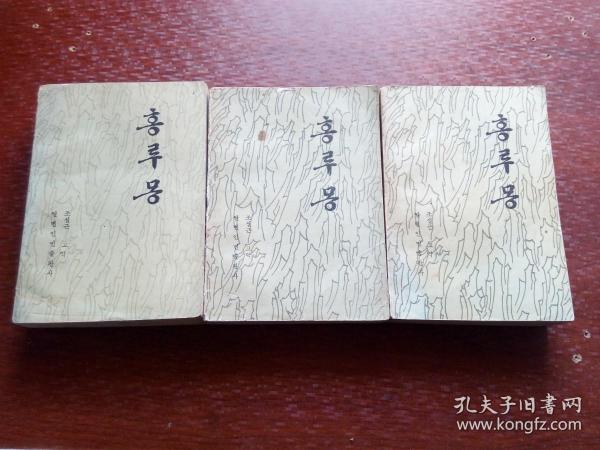 홍루몽
조설근 고악
연변인민출판사
홍루몽
조설근 고악
연변인민출판사
홍루몽
조설근 고악
연변인민출판사
孔夫子旧書网
www.kongfz.com